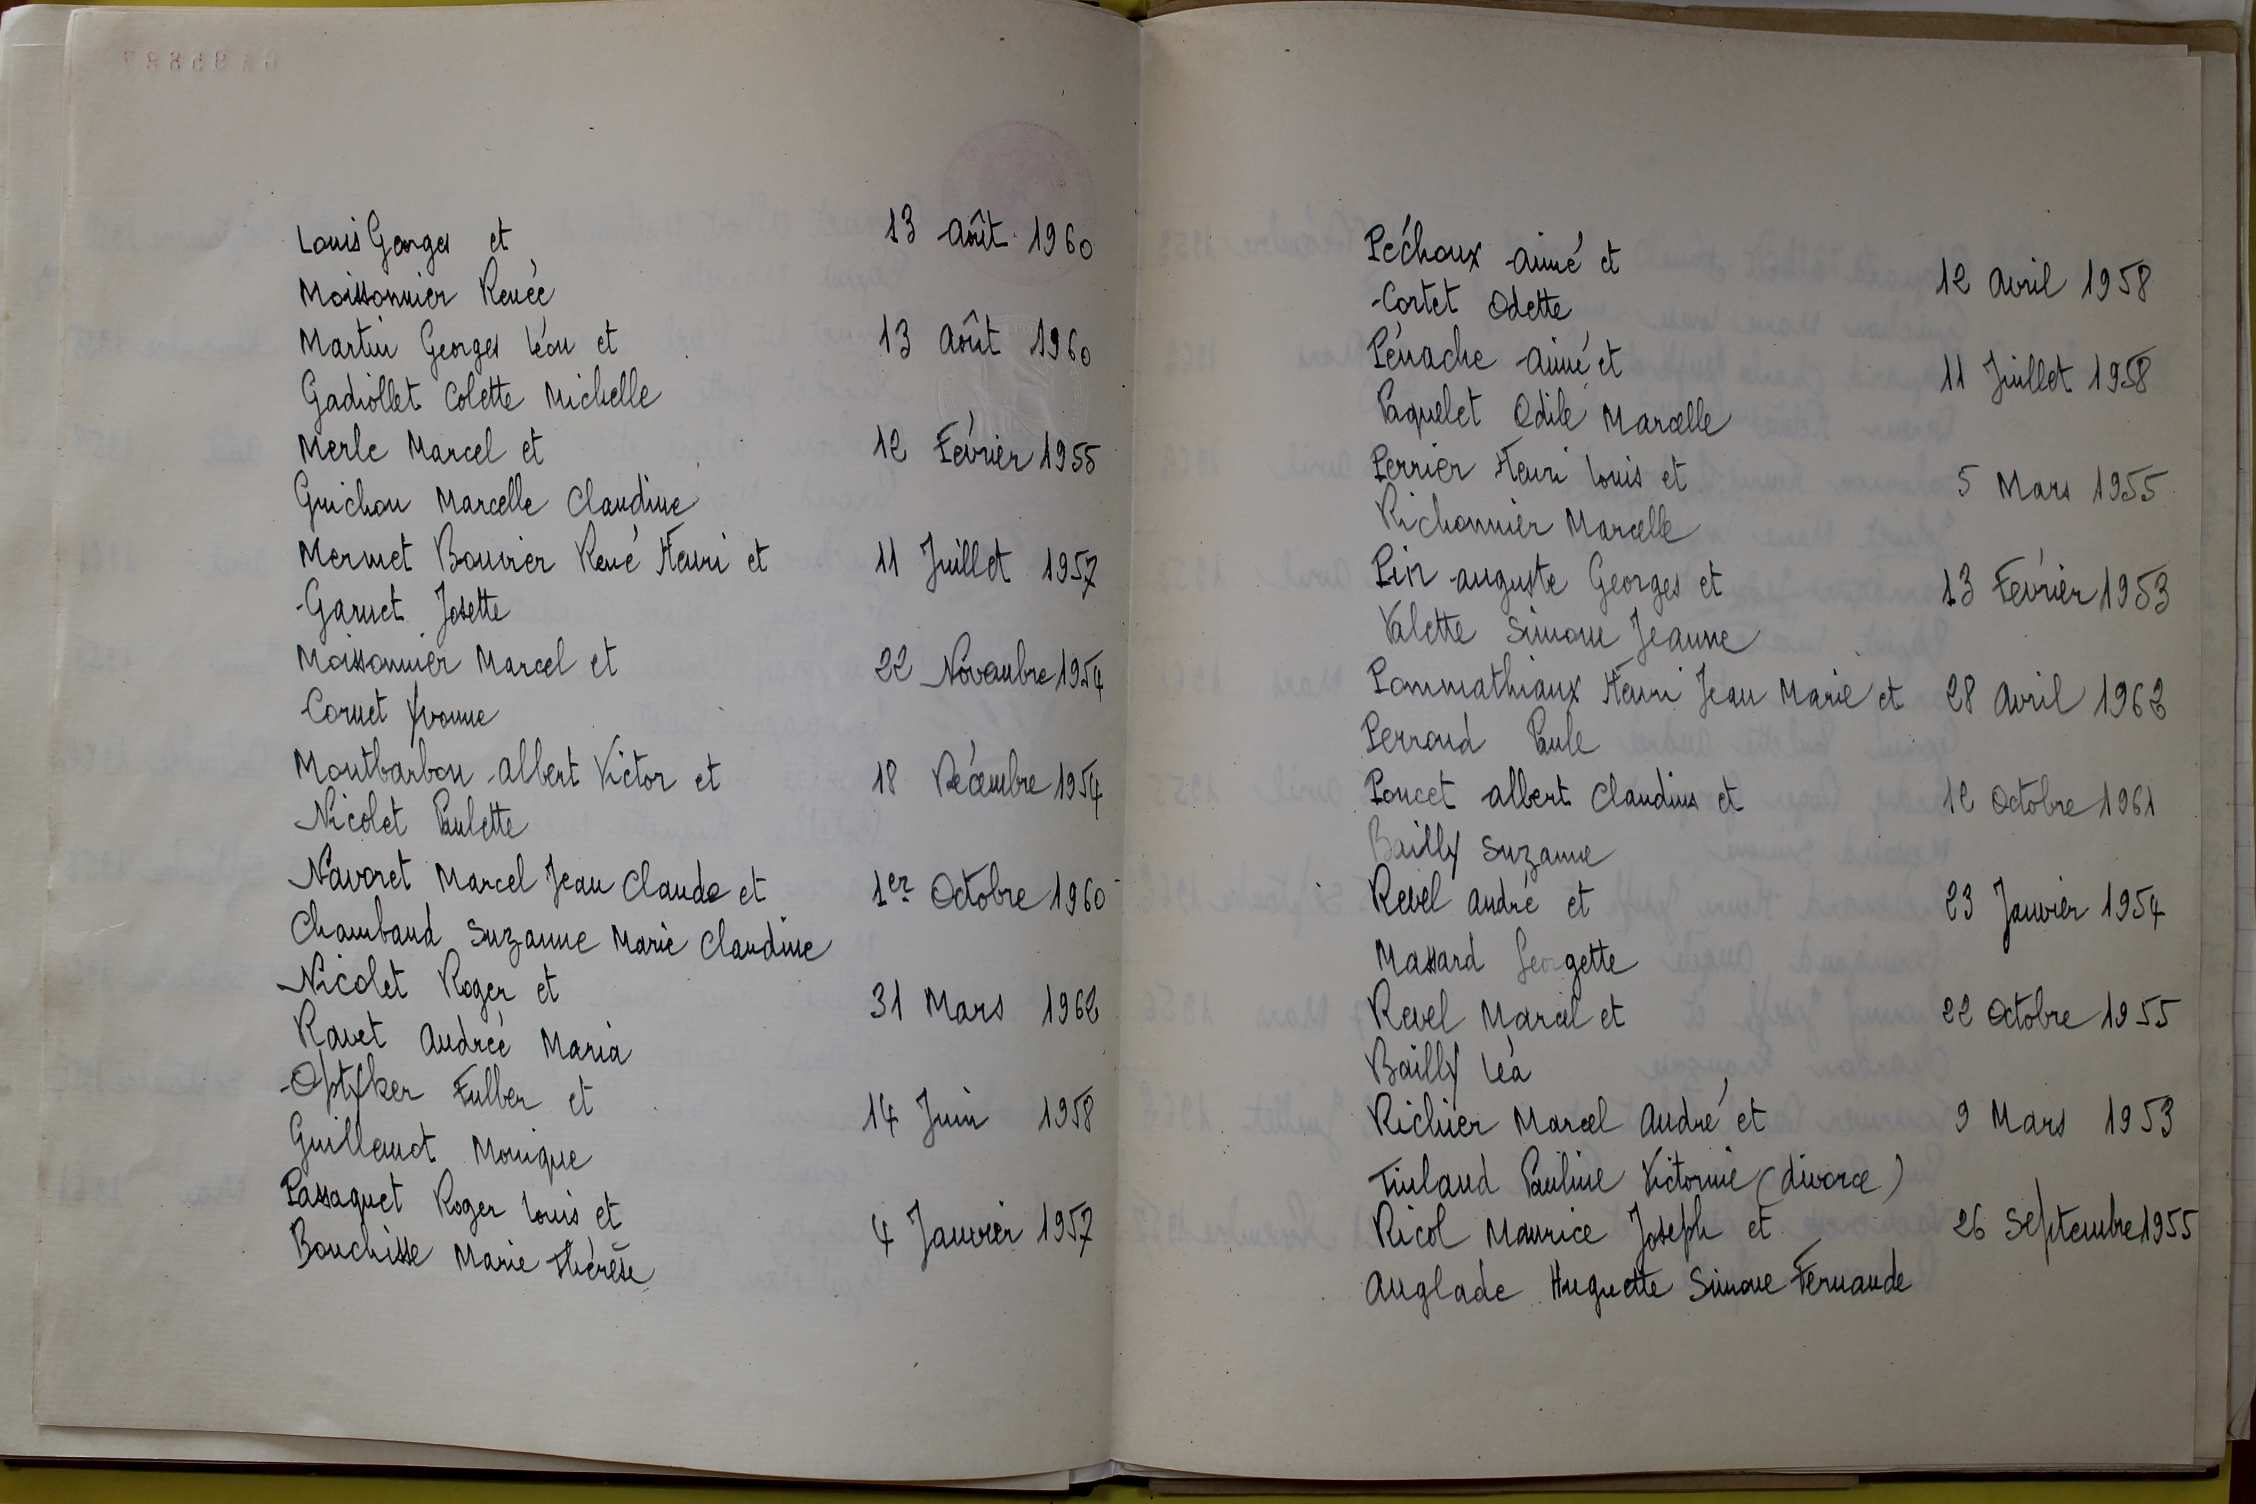 Louis Georges et 13 Août 1960
Moissonnier Renée
Martin Georges Léon et 13 Août 1960
Gadiollet Colette Michelle
Merle Marcel et 12 Février 1955
Guichon Marcelle Claudine
Mermet Bouvier René Henri et 11 Juillet 1957
Garnet Josette
Moissonnier Marcel et 22 Novembre 1954
Cornet Yvonne
Montbarbon Albert Victor et 18 Décembre 1954
Nicolet Paulette
Navoret Marcel Jean Claude et 1er Octobre 1960
Chambaud Suzanne Marie Claudine
Nicolet Roger et 31 Mars 1962
Ravet Andrée Maria
Fulber et 14 Juin 1958
Guillemot Monique
Passaquet Roger Louis et 4 Janvier 1957
Bouchisse Marie Thérèse
Péchoux Aimé et 12 Avril 1958
Cortet Odette
Pénache Aimé et 11 Juillet 1958
Paquelet Odile Marcelle
Perrier Henri Louis et 5 Mars 1955
Richonnier Marcelle
Pin Auguste Georges et 13 Février 1953
Valette Simone Jeanne
Pommathiaux Henri Jean Marie et 28 Avril 1962
Perroud Paule
Poncet Albert Claudius et 12 Octobre 1961
Bailly Suzanne
Revel André et 23 Janvier 1954
Massard Georgette
Revel Marcel et 22 Octobre 1955
Bailly Léa
Richier Marcel André et 9 Mars 1953
Tinland Pauline Victorine (divorce)
Ricol Maurice Joseph et 26 Septembre 1955
Anglade Huguette Simone Fernande